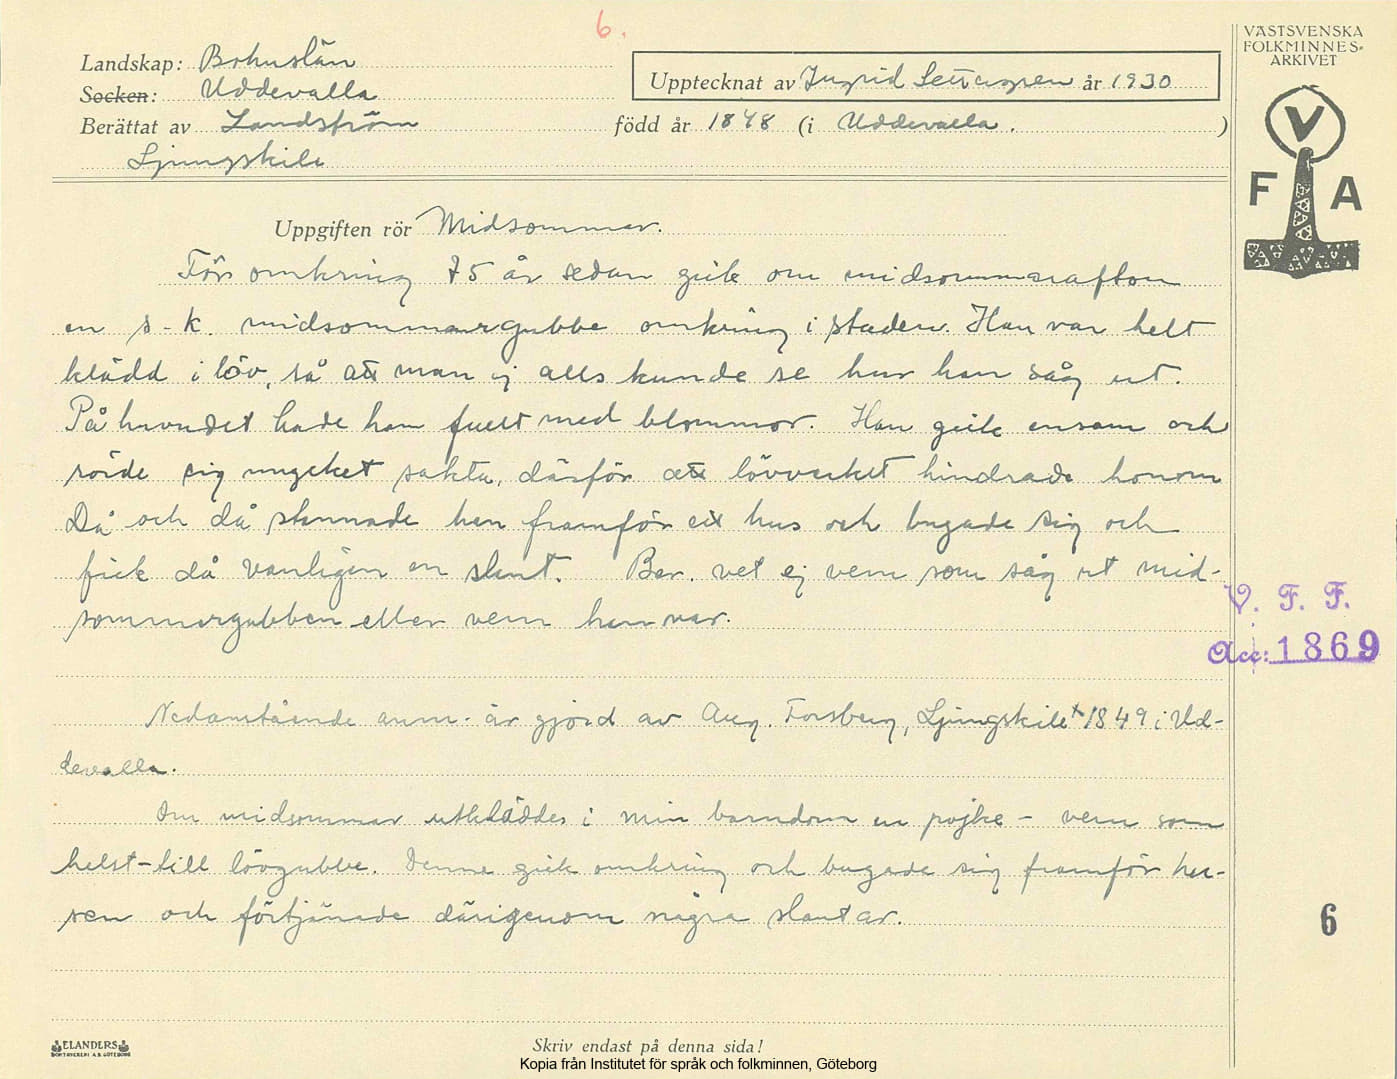 6.
VÄSTSVENSKA
FOLKMINNES-
ARKIVET
Landskap: Bohuslän
Upptecknat av Ingrid år 1930
Socken: Uddevalla
Berättat av Landström född år 1848 (i Uddevalla. )
Ljungskile
V
F A
Uppgiften rör Midsommar.
För omkring 75 år sedan gick om midsommarafton
en s.k. midsommargubbe omkring i staden. Han var helt
klädd i löv, så att man ej alls kunde se hur han såg ut.
På huvudet hade han fullt med blommor. Han gick ensam och
rörde sig mycket sakta, därför att lövverket hindrade honom
Då och då stannade han framför ett hus och bugade sig och
fick då vanligen en slant. Ber. vet ej vem som såg ut mid-
sommargubben eller vem han var.
V. F. F.
Acc: 1869
Nedanstående anm. är gjord av Aug. Forsberg, Ljungskile x 1849 i Ud-
devalla.
Om midsommar utkläddes i min barndom en pojke - vem som
helst - till lövgubbe. Denne gick omkring och bugade sig framför hu-
sen och förtjänade därigenom några slantar.
6
ELANDERS
BOKTRYCKERI A.B. GÖTEBORG
Skriv endast på denna sida!
Kopia från Institutet för språk och folkminnen, Göteborg